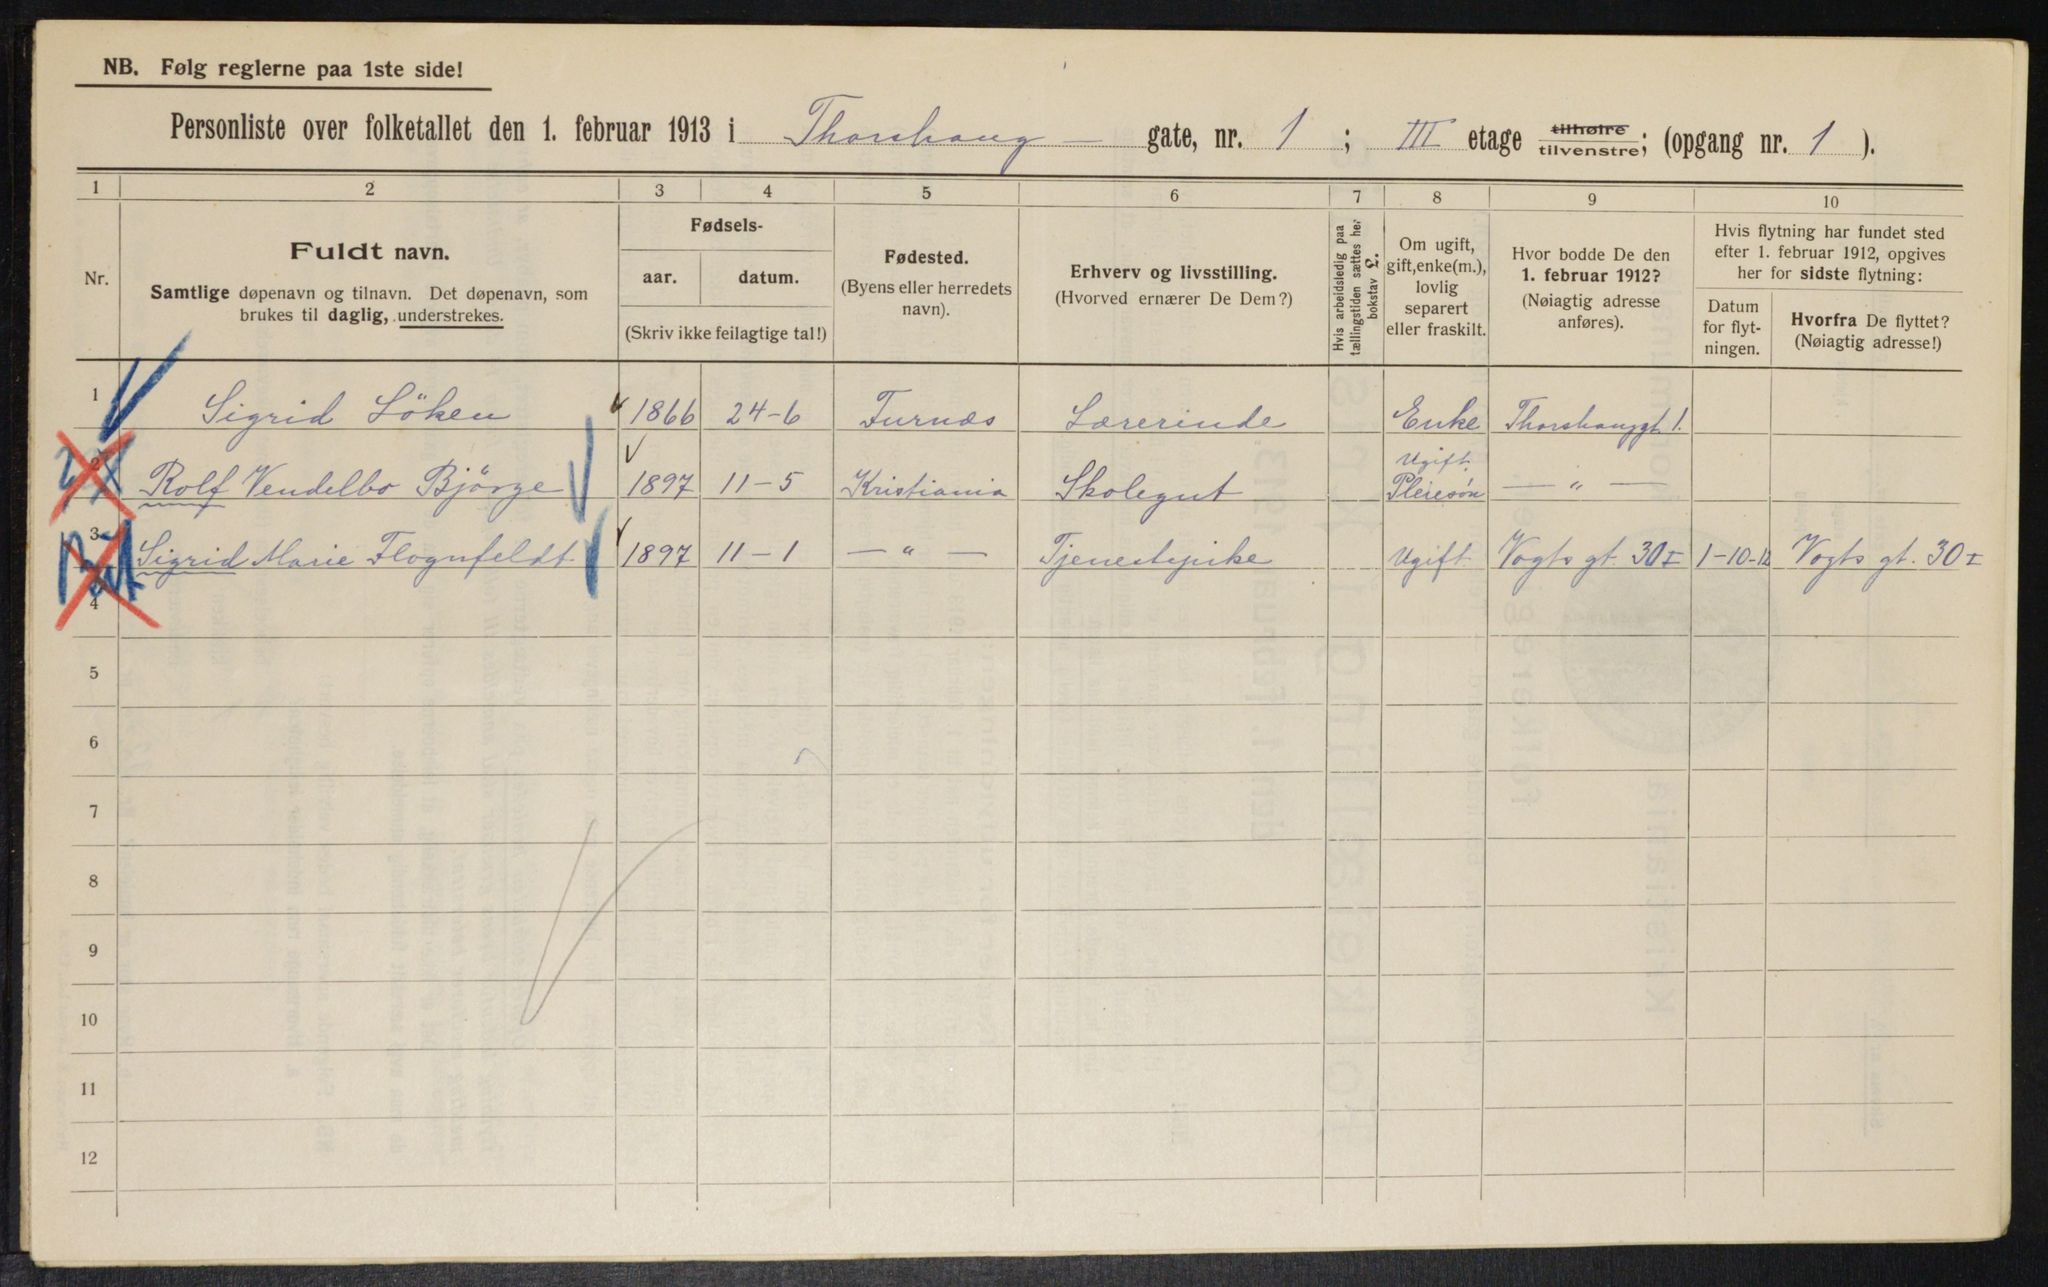 NB. Følg reglerne paa 1ste side!
Personliste over folketallet den 1. februar 1913 i Thorshaug gate, nr. 1 ; III etage tilhøire tilvenstre; (opgang nr. 1 ).
1 2 3 4 5 6 7 8 9 10
Nr.
Fuldt navn.
Samtlige døpenavn og tilnavn. Det døpenavn, som
brukes til daglig, understrekes.
Fødsels-
aar. datum.
(Skriv ikke feilagtige tal!)
Fødested.
(Byens eller herredets
navn).
Erhverv og livsstilling.
(Hvorved ernærer De Dem?)
Hvis arbeidsledig paa
tællingstiden sættes her
bokstav L.
Om ugift,
gift, enke(m.),
lovlig
separert
eller fraskilt.
Hvor bodde De den
1. februar 1912?
(Nøiagtig adresse
anføres).
Hvis flytning har fundet sted
efter 1. februar 1912, opgives
her for sidste flytning:
Datum
for flyt-
ningen.
Hvorfra De flyttet?
(Nøiagtig adresse!)
1 Sigrid Löken 1866 24-6 Furnæs Lærerinde Enke Thorshauggt. 1.
2 Rolf Vendelbo Bjørge 1897 11-5 Kristiania Skolegut Ugift Pleiesön — " —
3 Sigrid Marie Flognfeldt 1897 11-1 — " — Tjenestepike Ugift Vogts gt. 30 I 1-10-12 Vogts gt. 30 I
4
5
6
7
8
9
10
11
12